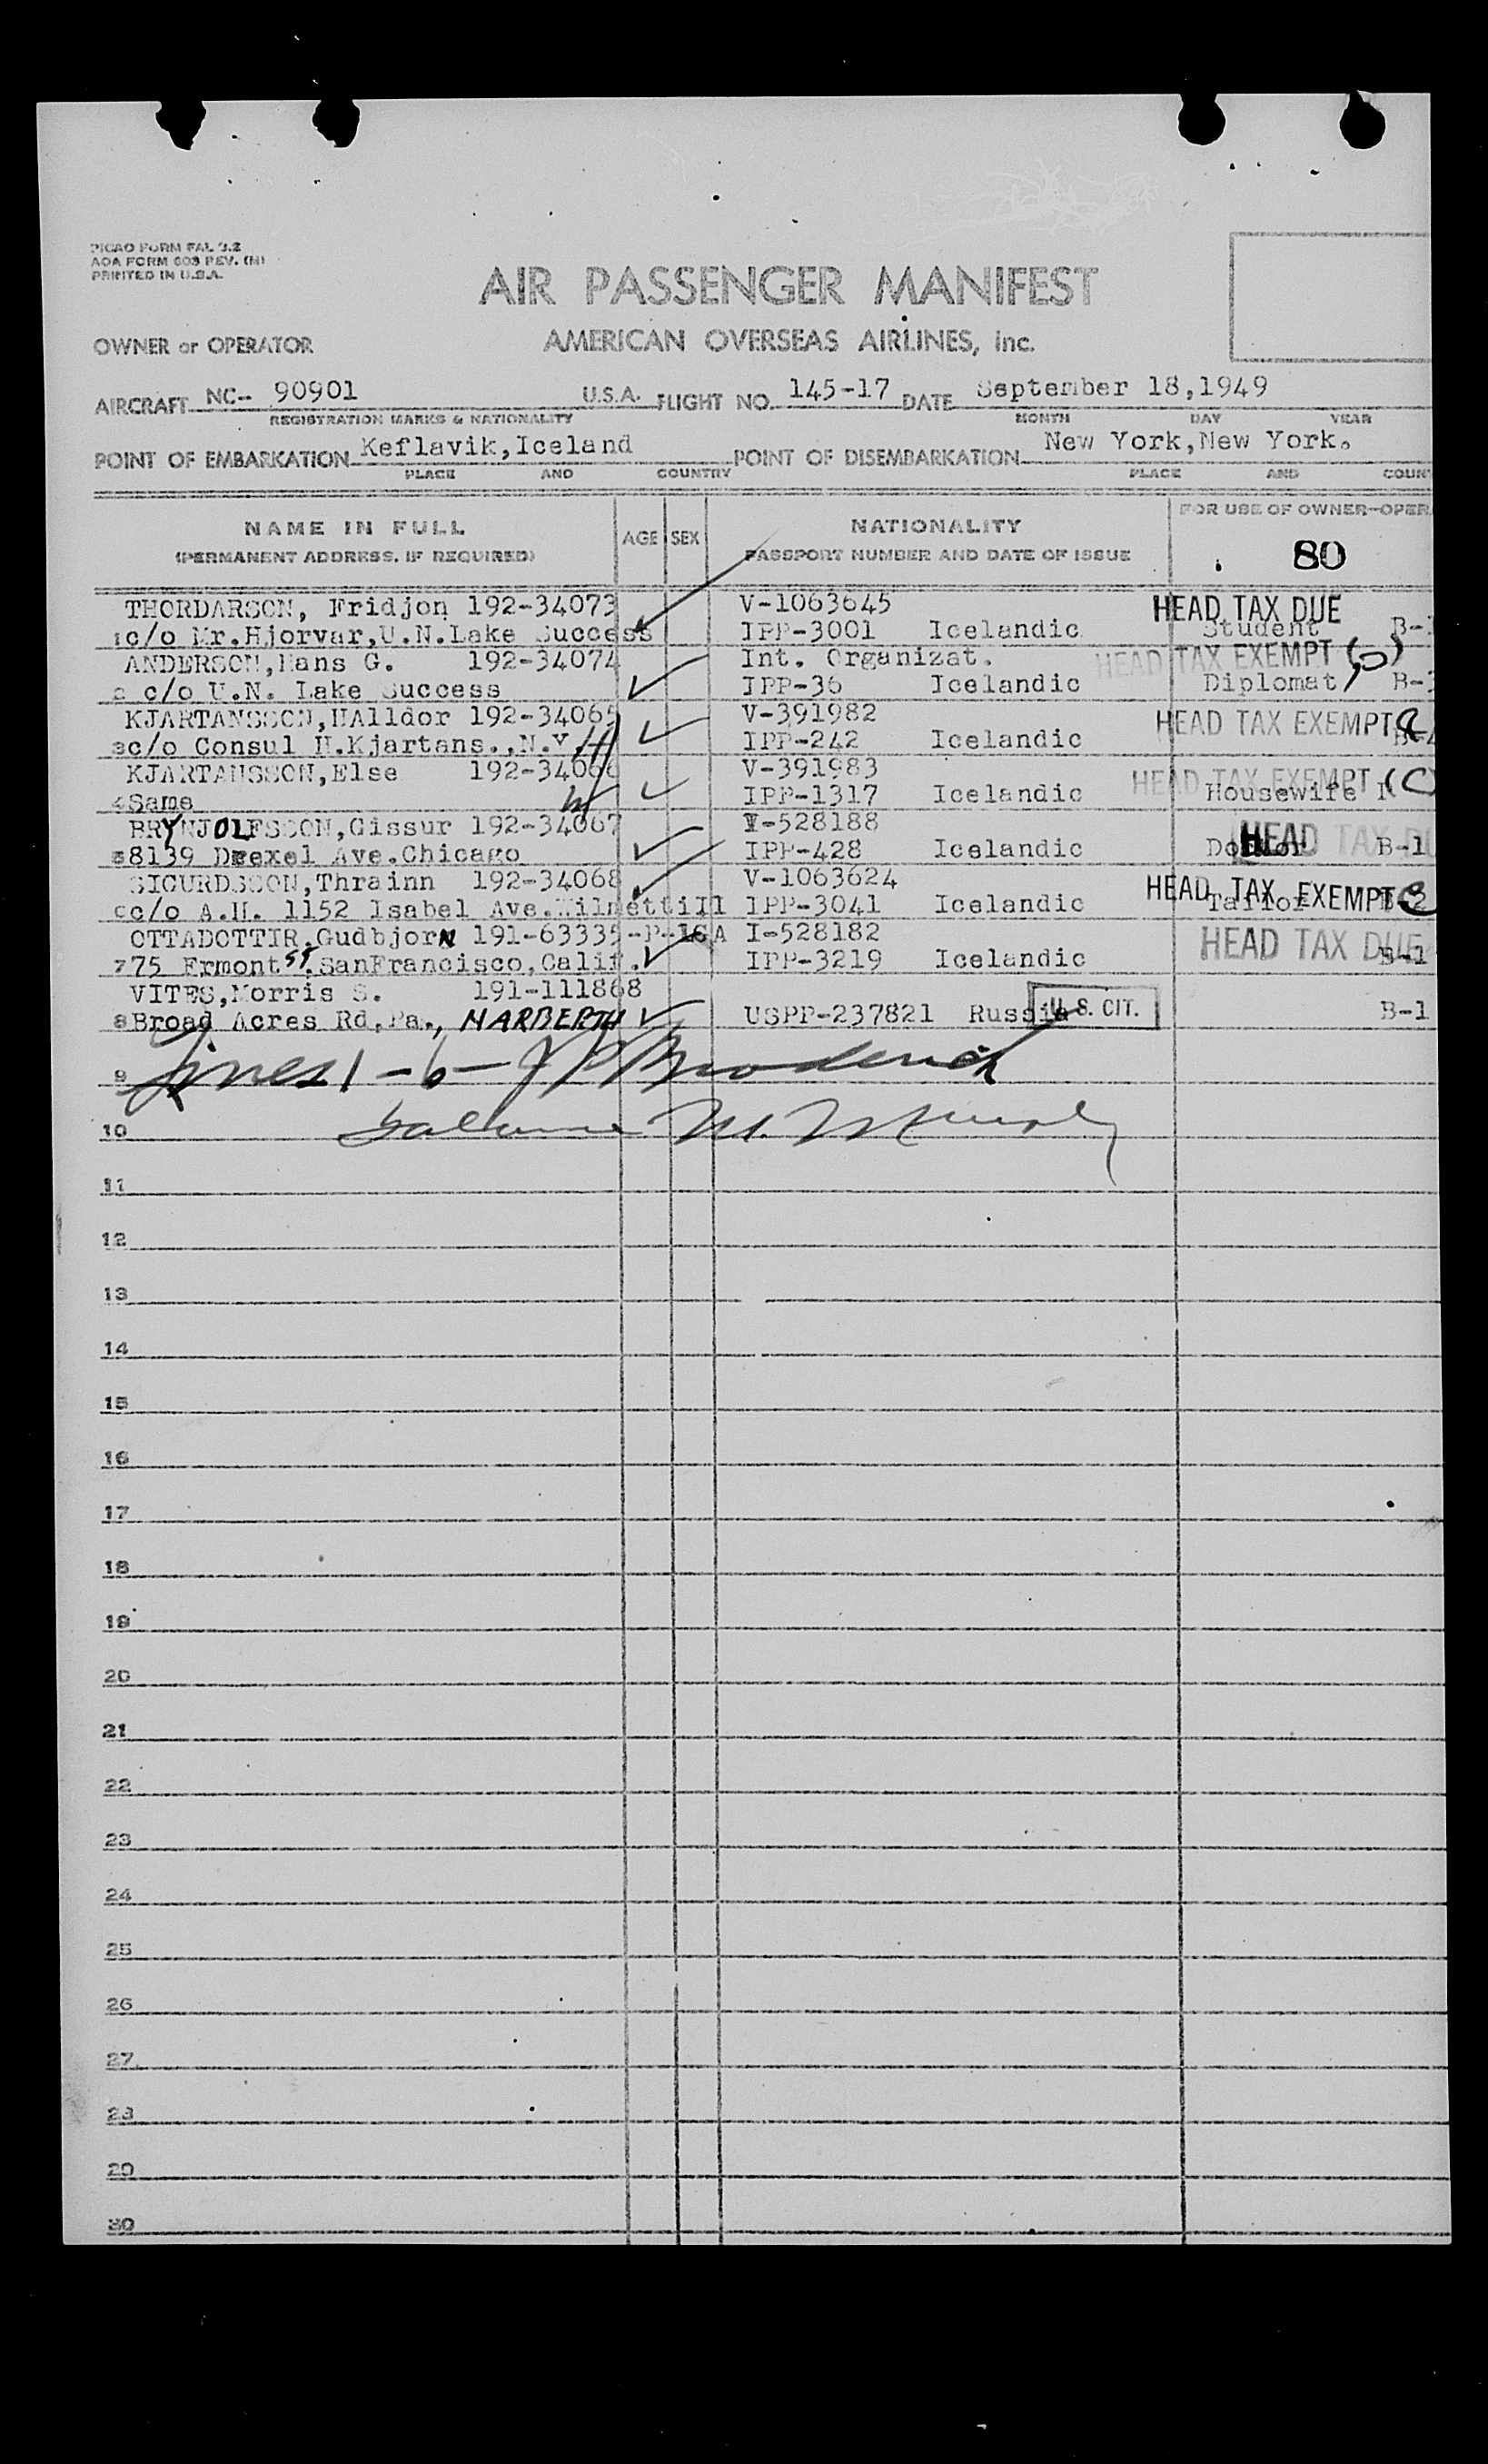 PICAO FORM FAL 3.2
AOA FORM 603 REV. (M)
PRINTED IN U.S.A.
AIR PASSENGER MANIFEST
OWNER or OPERATOR
AMERICAN OVERSEAS AIRLINES, Inc.
AIRCRAFT NC-- 90901 U.S.A. FLIGHT NO. 145-17 DATE September 18,1949
REGISTRATION MARKS & NATIONALITY MONTH DAY YEAR
POINT OF EMBARKATION Keflavik,Iceland POINT OF DISEMBARKATION New York,New York.
PLACE AND COUNTRY PLACE AND COUN
NAME IN FULL AGE SEX NATIONALITY FOR USE OF OWNER-OPER
(PERMANENT ADDRESS, IF REQUIRED) PASSPORT NUMBER AND DATE OF ISSUE 80
THORDARSON, Fridjon 192-34073 V-1063645 HEAD TAX DUE
1 c/o Mr.Hjorvar,U.N.Lake Success IPP-3001 Icelandic Student B-
ANDERSON,Hans G. 192-34074 Int. Organizat. HEAD TAX EXEMPT
2 c/o U.N. Lake Success IPP-36 Icelandic Diplomat B-
KJARTANSSON,HAlldor 192-34065 V-391982 HEAD TAX EXEMPT
3 c/o Consul H.Kjartans.,N.Y. IPP-242 Icelandic
KJARTANSSON,Else 192-34066 V-391983 HEAD TAX EXEMPT (C)
4 Same IPP-1317 Icelandic Housewife
BRYNJOLFSSON,Gissur 192-34067 V-528188 HEAD TAX DU
5 8139 Drexel Ave.Chicago IPP-428 Icelandic Doctor B-1
SIGURDSSON,Thrainn 192-34068 V-1063624 HEAD TAX EXEMPT
6 c/o A.H. 1152 Isabel Ave.WilmettIll IPP-3041 Icelandic Tailor B-2
OTTADOTTIR,GudbjorN 191-63335-P-16A I-528182 HEAD TAX DUE
7 75 Ermont ST.SanFrancisco,Calif. IPP-3219 Icelandic B-1
VITES,Morris S. 191-111868
8 Broad Acres Rd,Pa., NARBERTH USPP-237821 Russia U.S. CIT. B-1
9 Lines 1-6- J P Broderick
10
11
12
13
14
15
16
17
18
19
20
21
22
23
24
25
26
27
28
29
30